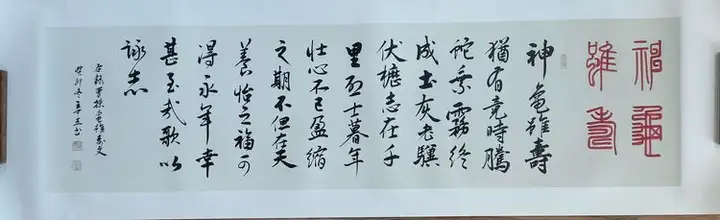 神龜
雖壽
神龜雖壽
猶有竟時騰
蛇乘霧終
成土灰老驥
伏櫪志在千
里烈士暮年
壯心不已盈縮
之期不但在天
養怡之福可
得永年幸
甚至哉歌以
詠志
曹操龜雖壽文
癸卯冬